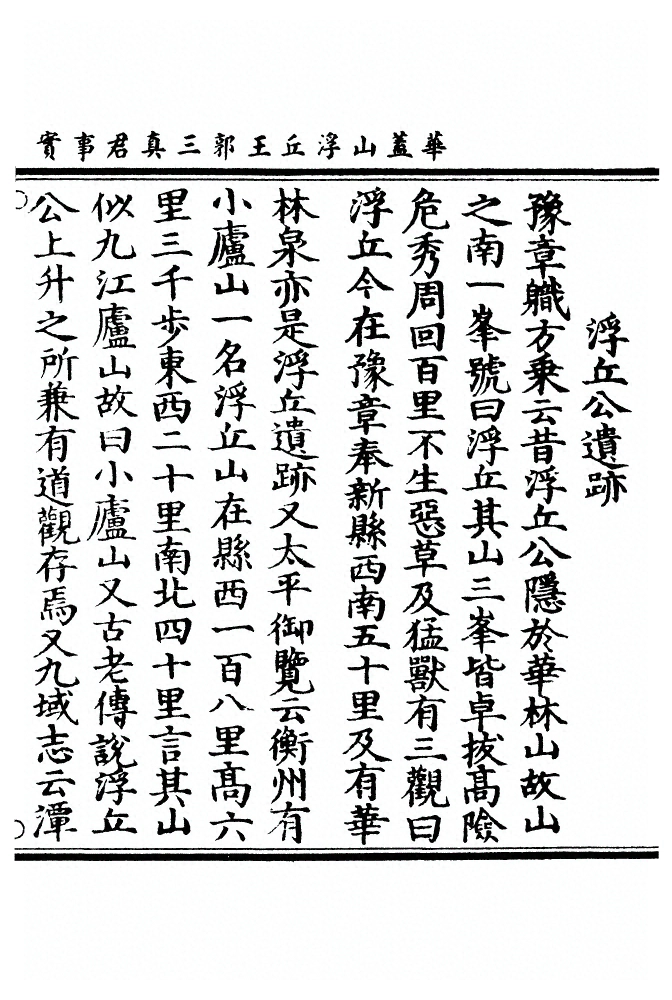 華蓋山浮丘王郭三真君事實
浮丘公遺跡
豫章職方乘云昔浮丘公隱於華林山故山
之南一峯號曰浮丘其山三峯皆卓拔高險
危秀周回百里不生惡草及猛獸有三觀曰
浮丘今在豫章奉新縣西南五十里及有華
林泉亦是浮丘遺跡又太平御覽云衡州有
小廬山一名浮丘山在縣西一百八里高六
里三千步東西二十里南北四十里言其山
似九江廬山故曰小廬山又古老傳說浮丘
公上升之所兼有道觀存焉又九域志云潭